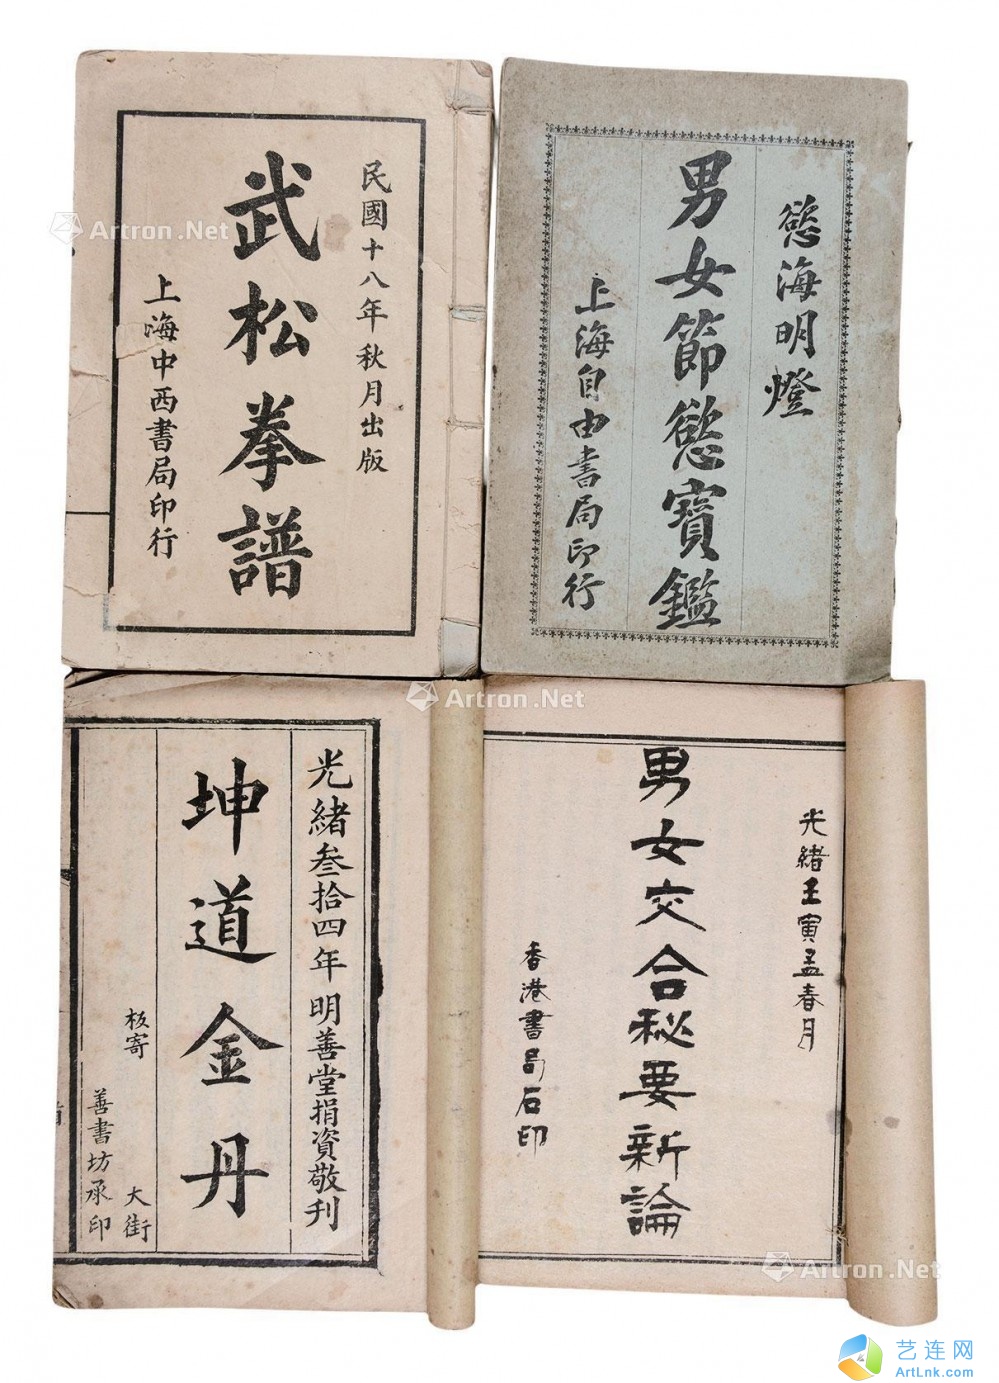 民國十八年秋月出版
武松拳譜
上海中西書局印行
慾海明燈
男女節慾寶鑑
上海自由書局印行
光緒叁拾四年明善堂捐資敬刊
坤道金丹
板寄大街
善書坊承印
光緒壬寅孟春月
男女交合秘要新論
香港書局石印
Artron.Net
Artron.Net
Artron.Net
艺连网
ArtLnk.com